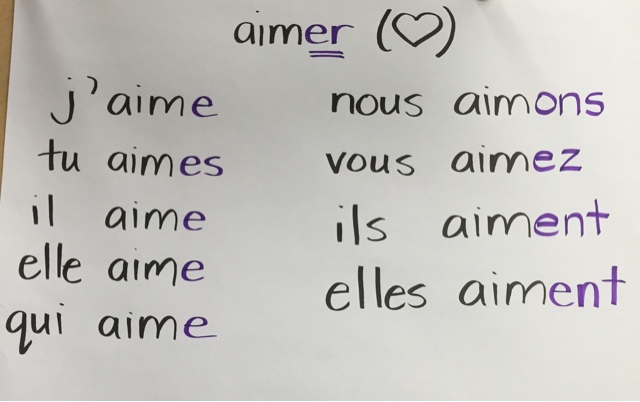 aimer (♡)
j'aime
tu aimes
il aime
elle aime
qui aime
nous aimons
vous aimez
ils aiment
elles aiment